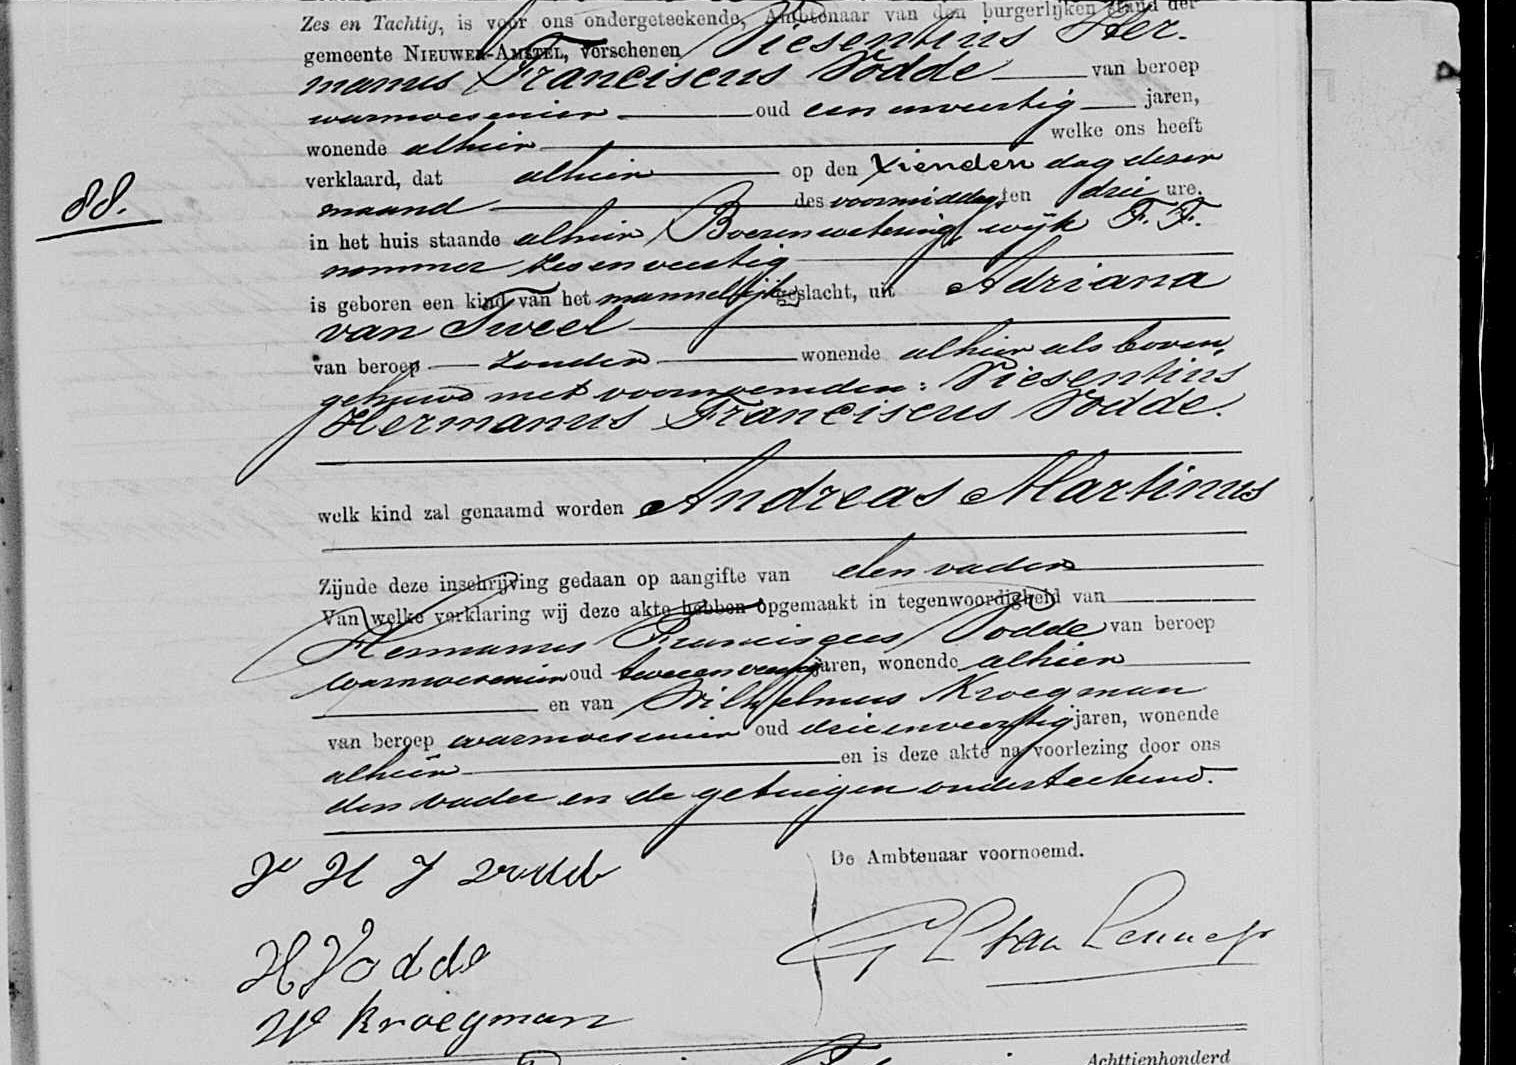 Zes en Tachtig, is voor ons ondergeteekende, Ambtenaar van den burgerlijken stand der
gemeente NIEUWER-AMSTEL, verschenen Viesentius Her-
manus Franciscus Vodde van beroep
warmoesenier oud een en veertig jaren,
wonende alhier welke ons heeft
verklaard, dat alhier op den tienden dag dezer
88.
maand des voormiddags ten drie ure.
in het huis staande alhier Boerenwetering, wijk F.F.
nommer zes en veertig
is geboren een kind van het mannelijk geslacht, uit Adriana
van Tweel
van beroep zonder wonende alhier als boven,
gehuwd met voornoemden: Viesentius
Hermanus Franciscus Vodde.
welk kind zal genaamd worden Andreas Martinus
Zijnde deze inschrijving gedaan op aangifte van den vader
Van welke verklaring wij deze akte hebben opgemaakt in tegenwoordigheid van
Hermanus Franciscus Vodde van beroep
warmoesenier oud jaren, wonende alhier
en van Wilhelmus Kroegman
van beroep warmoesenier oud drie en veertig jaren, wonende
alhier en is deze akte na voorlezing door ons
den vader en de getuigen onderteekend.
De Ambtenaar voornoemd.
H Vodde
van Lennep
W Kroegman
Achttienhonderd